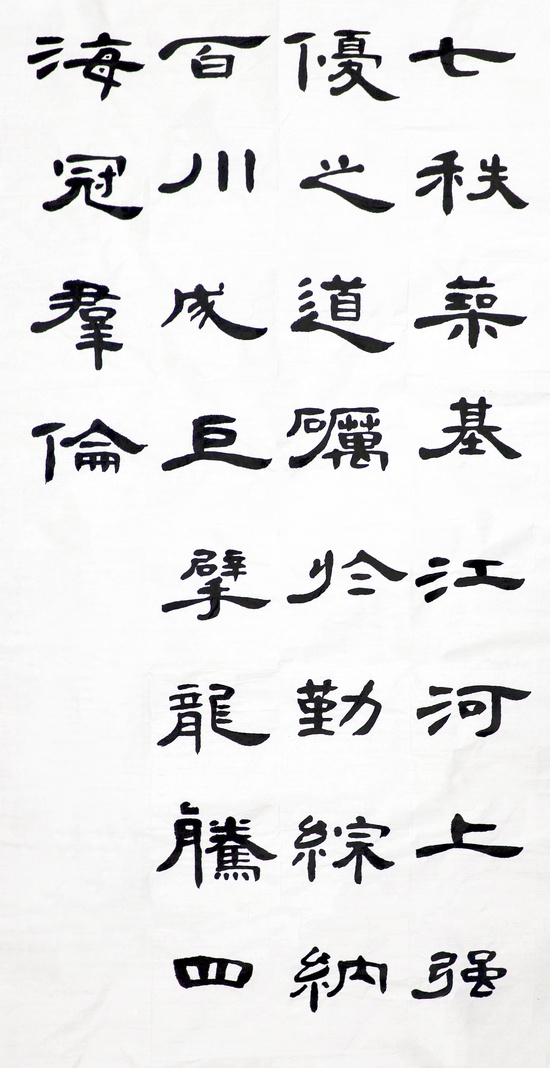 七秩築基江河上强
優之道礪於勤綜納
百川成巨擘龍騰四
海冠羣倫